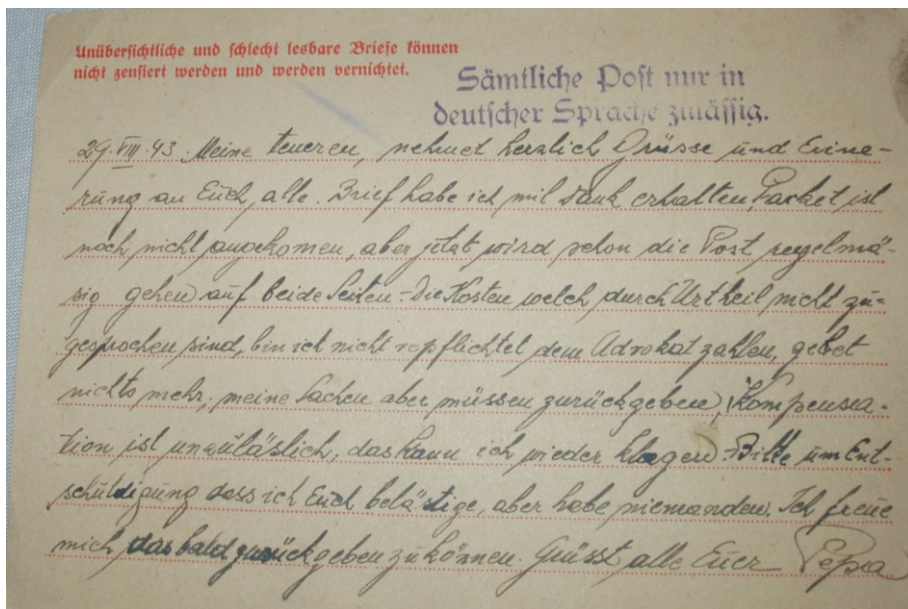 Unübersichtliche und schlecht lesbare Briefe können
nicht zensiert werden und werden vernichtet.
Sämtliche Post nur in
deutscher Sprache zulässig.
29.VIII.43. Meine teueren, nehmet herzlich Grüsse und Erine-
rung an Euch, alle. Brief habe ich mit Dank erhalten, Packet ist
noch nicht angekomen, aber jetzt wird schon die Post regelmä-
sig gehen auf beide Seiten. - Die Kosten welch durch Urtheil nicht zu-
gesprochen sind, bin ich nicht verpflichtet dem Advokat zahlen, gebet
nichts mehr, meine Sachen aber müssen zurückgeben, Kompensa-
tion ist unzuläslich, das kann ich wieder klagen. - Bitte um Ent-
schuldigung dass ich Euch belästige, aber habe niemanden. Ich freue
mich das bald zurückgeben zu können. Grüsst alle Euer Pepa